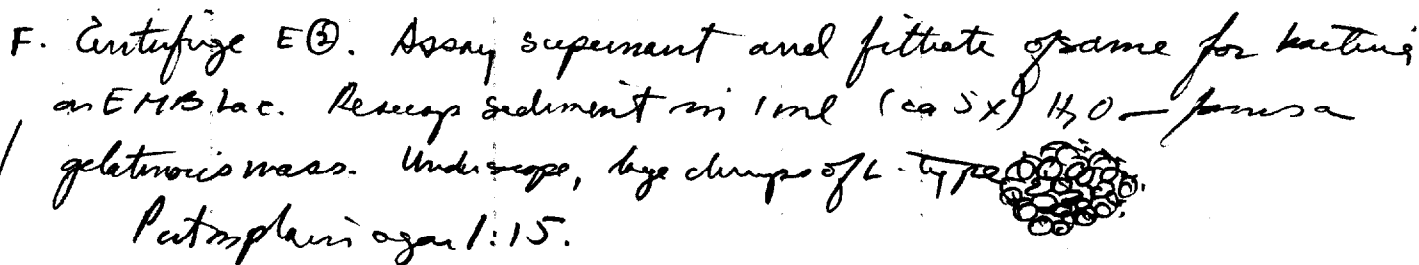 F. Centrifuge E③. Assay supernant and filtrate of same for bacteria
on EMB Lac. Resusp sediment in 1 ml (ca 5x) H2O — forms a
gelatinous mass. Under scope, large clumps of L-type
Put on plain agar 1:15.